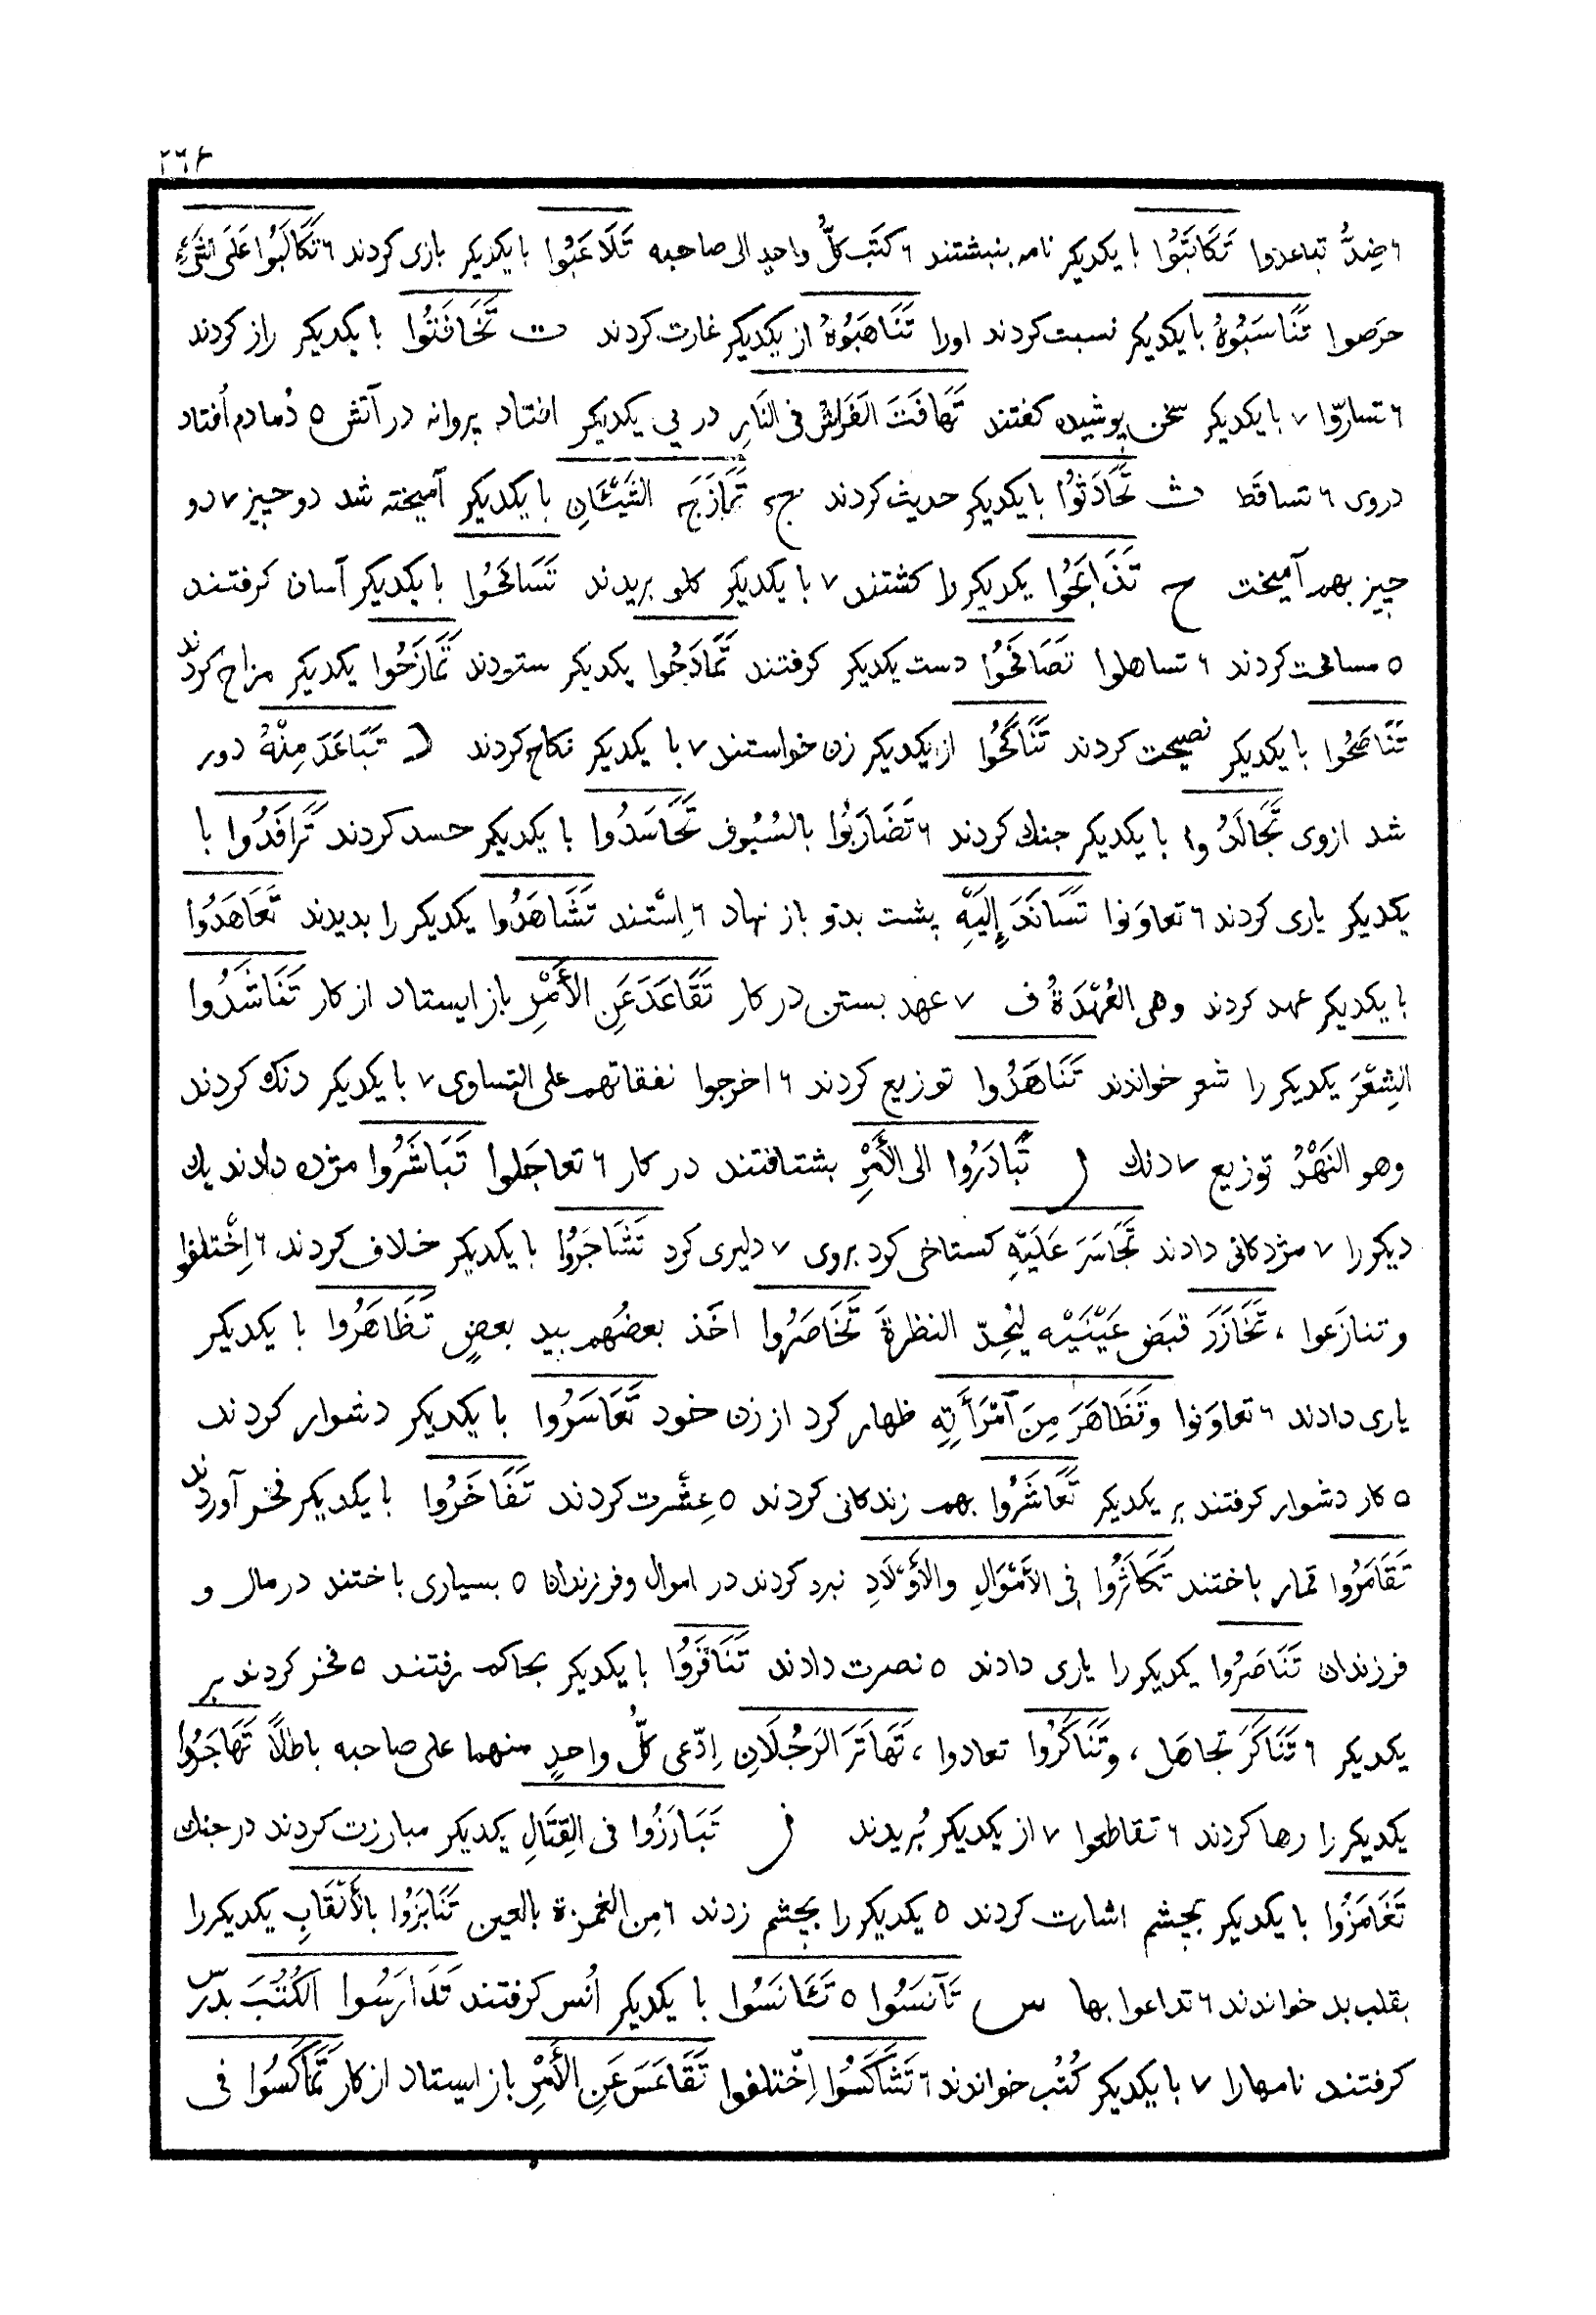 ٢٦٤
٦ ضِدُّ تباعدوا تَكَاتَبُوا با يكديكر نامه بنبشتند ٦ كَتَب كلُّ واحدٍ الى صاحبه تَلَاعَبُوا با يكديكر بازى كردند ٦ تَكَالَبُوا عَلَى الشَّىْءِ
حَرَصوا تَنَاسَبُوهُ بايكديكر نسبت كردند اورا تَنَاهَبُوهُ از يكديكر غارت كردند ت تَخَافَتُوا با يكديكر راز كردند
٦ تسارّوا ٧ با يكديكر سخن پوشيده كفتند تَهَافَتَ الفَرَاشُ فى النَارِ در پى يكديكر افتاد پروانه در آتش ٥ دُمادم اُفتاد
دروى ٦ تساقط ث تَحَادَثُوا با يكديكر حديث كردند ج تَمَازَجَ الشَيْئَانِ با يكديكر آميخته شد دو چيز ٧ دو
چيز بهم آميخت ح تَذَابَحُوا يكديكر را كشتند ٧ با يكديكر كلو بريدند تَسَامَحُوا با يكديكر آسان كرفتند
٥ مسامحت كردند ٦ تساهلوا تَصَافَحُوا دست يكديكر كرفتند تَمَادَحُوا يكديكر ستودند تَمَازَحُوا يكديكر مزاح كردند
تَنَاصَحُوا با يكديكر نصيحت كردند تَنَاكَحُوا از يكديكر زن خواستند ٧ با يكديكر نكاح كردند د تَبَاعَدَ مِنْهُ دور
شد ازوى تَجَالَدُوا با يكديكر جنك كردند ٦ تَضَارَبُوا بالسُيُوف تَحَاسَدُوا با يكديكر حسد كردند تَرَافَدُوا با
يكديكر يارى كردند ٦ تعاوَنوا تَسَانَدَ إِلَيْهِ پشت بدو باز نهاد ٦ اِسْتند تَشَاهَدُوا يكديكر را بديدند تَعَاهَدُوا
با يكديكر عهد كردند وهى العُهْدَةُ ف ٧ عهد بستن در كار تَقَاعَدَ عَنِ الأَمْرِ باز ايستاد از كار تَنَاشَدُوا
الشِعْرَ يكديكر را شعر خواندند تَنَاهَدُوا توزيع كردند ٦ اخرجوا نفقاتهم على التساوى ٧ با يكديكر دنك كردند
وهو النَهْدُ توزيع ٧ دنك ر تَبَادَرُوا الى الأَمْرِ بشتافتند در كار ٦ تعاجَلوا تَبَاشَرُوا مژده دادند يك
ديكر را ٧ مژدكانى دادند تَجَاسَرَ عَلَيْهِ كستاخى كرد بروى ٧ دليرى كرد تَشَاجَرُوا با يكديكر خلاف كردند ٦ اِخْتلفوا
وتنازَعوا ، تَخَازَرَ قبَض عَيْنَيْه ليُحِدّ النظرةَ تَخَاصَرُوا اخَذ بعضُهم بيد بعضٍ تَظَاهَرُوا با يكديكر
يارى دادند ٦ تعاوَنوا وتَظَاهَرَ مِنَ آمْرَأَتِهِ ظهار كرد از زن خود تَعَاسَرُوا با يكديكر دشوار كردند
٥ كار دشوار كرفتند بر يكديكر تَعَاشَرُوا بهم زندكانى كردند ٥ عِشْرت كردند تَفَاخَرُوا با يكديكر فخر آوردند
تَقَامَرُوا قمار باختند تَكَاثَرُوا فِى الأَمْوَالِ والأَوْلَادِ نبرد كردند در اموال وفرزندان ٥ بسيارى باختند در مال و
فرزندان تَنَاصَرُوا يكديكر را يارى دادند ٥ نصرت دادند تَنَافَرُوا با يكديكر بحاكم رفتند ٥ فخر كردند بر
يكديكر ٦ تَنَاكَرَ تجاهَل ، وتَنَاكَرُوا تعادوا ، تَهَاتَرَ الرَجُلَانِ اِدّعى كلُّ واحدٍ منهما على صاحبه باطلًا تَهَاجَرُوا
يكديكر را رها كردند ٦ تقاطعوا ٧ از يكديكر بُريدند ز تَبَارَزُوا فى القِتَالِ يكديكر مبارزت كردند در جنك
تَغَامَزُوا با يكديكر بچشم اشارت كردند ٥ يكديكر را بچشم زدند ٦ مِن الغمزة بالعين تَنَابَزُوا بالأَلْقَابِ يكديكر را
بقلب بد خواندند ٦ تداعوا بها س تَآنَسُوا ٥ تَئَانَسُوا با يكديكر اُنس كرفتند تَدَارَسُوا الكُتُبَ بدرس
كرفتند نامها را ٧ با يكديكر كُتُب خواندند ٦ تَشَاكَسُوا اِخْتلفوا تَقَاعَسَ عَنِ الأَمْرِ باز ايستاد از كار تَمَاكَسُوا فى